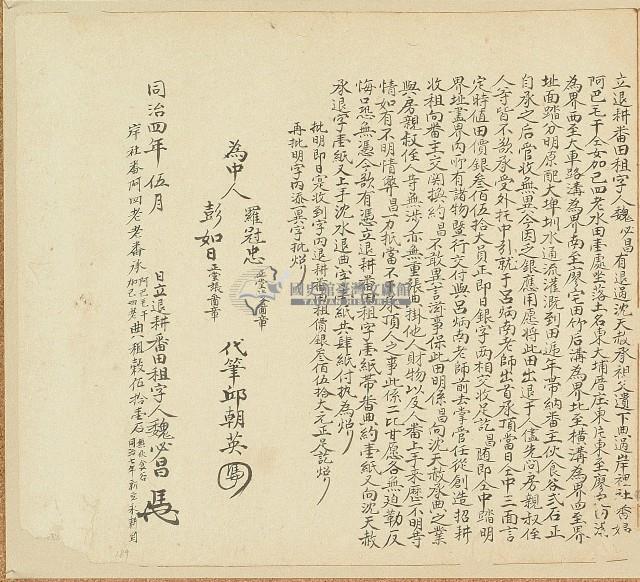 立退耕番田租字人魏必昌有退過沈天赦承父遺下曲過岸裡社番婦
阿巴毛干仝女加己四老水田壹處坐落土名東大埔厝庄東
為界西至大車路溝為界南至廖宅田竹后溝為界北至橫溝為界四至界
址面踏分明原配大埤圳水通流灌溉到田遞年帶納番主伙食谷弍石正
自承之后管收無異今因乏銀應用愿將此田出退于人儘先問房親叔侄
人等皆不欲承受外托中引就于呂炳南老師出首承頂當日仝中三面言
定時值田價銀叁佰伍拾大員正即日銀字兩相交收足訖昌隨即仝中踏明
界址畫界內所有諸物暨行交付與呂炳南老師前去掌管任從創造招耕
收租向番主交関換約昌不敢異言滋事保此田明係昌向沈天赦承曲之業
與房親叔侄人等無涉亦無重張曲掛他人財物以及人上手來歷不明等
情如有不明情獘昌一力抵當不干承頂人之事此係二比甘愿各無迫勒反
悔口恐無憑今欲有憑立退耕番田租字壹紙帶番曲約壹紙又向沈天赦
承退字壹紙又上手沈水退曲字壹紙共肆紙付执為炤
批明即日寔收到字內退耕番田租價銀叁佰伍拾大元正足訖炤
再批明字內添一異字批炤
為中人 羅冠忠
彭如日
代筆邱朝英
同治四年伍月 日立退耕番田租字人魏必昌
岸社番阿四老老番承阿巴毛干加己四老曲租榖伍拾壹石
189
國史館臺灣文獻館